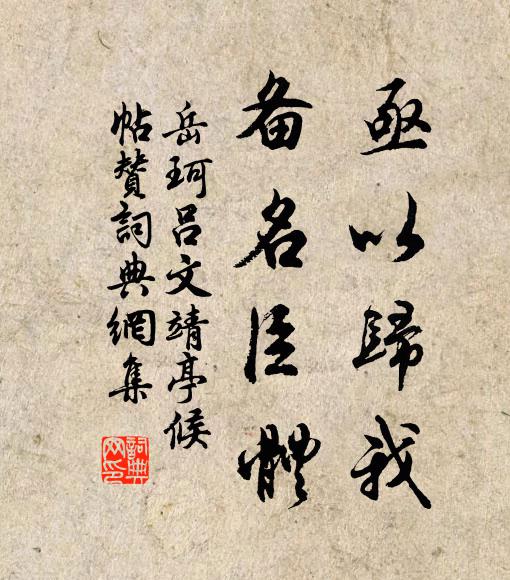 亟以歸我
备名臣體
岳珂吕文靖亭候
帖賛詞典網集
詞典
网印